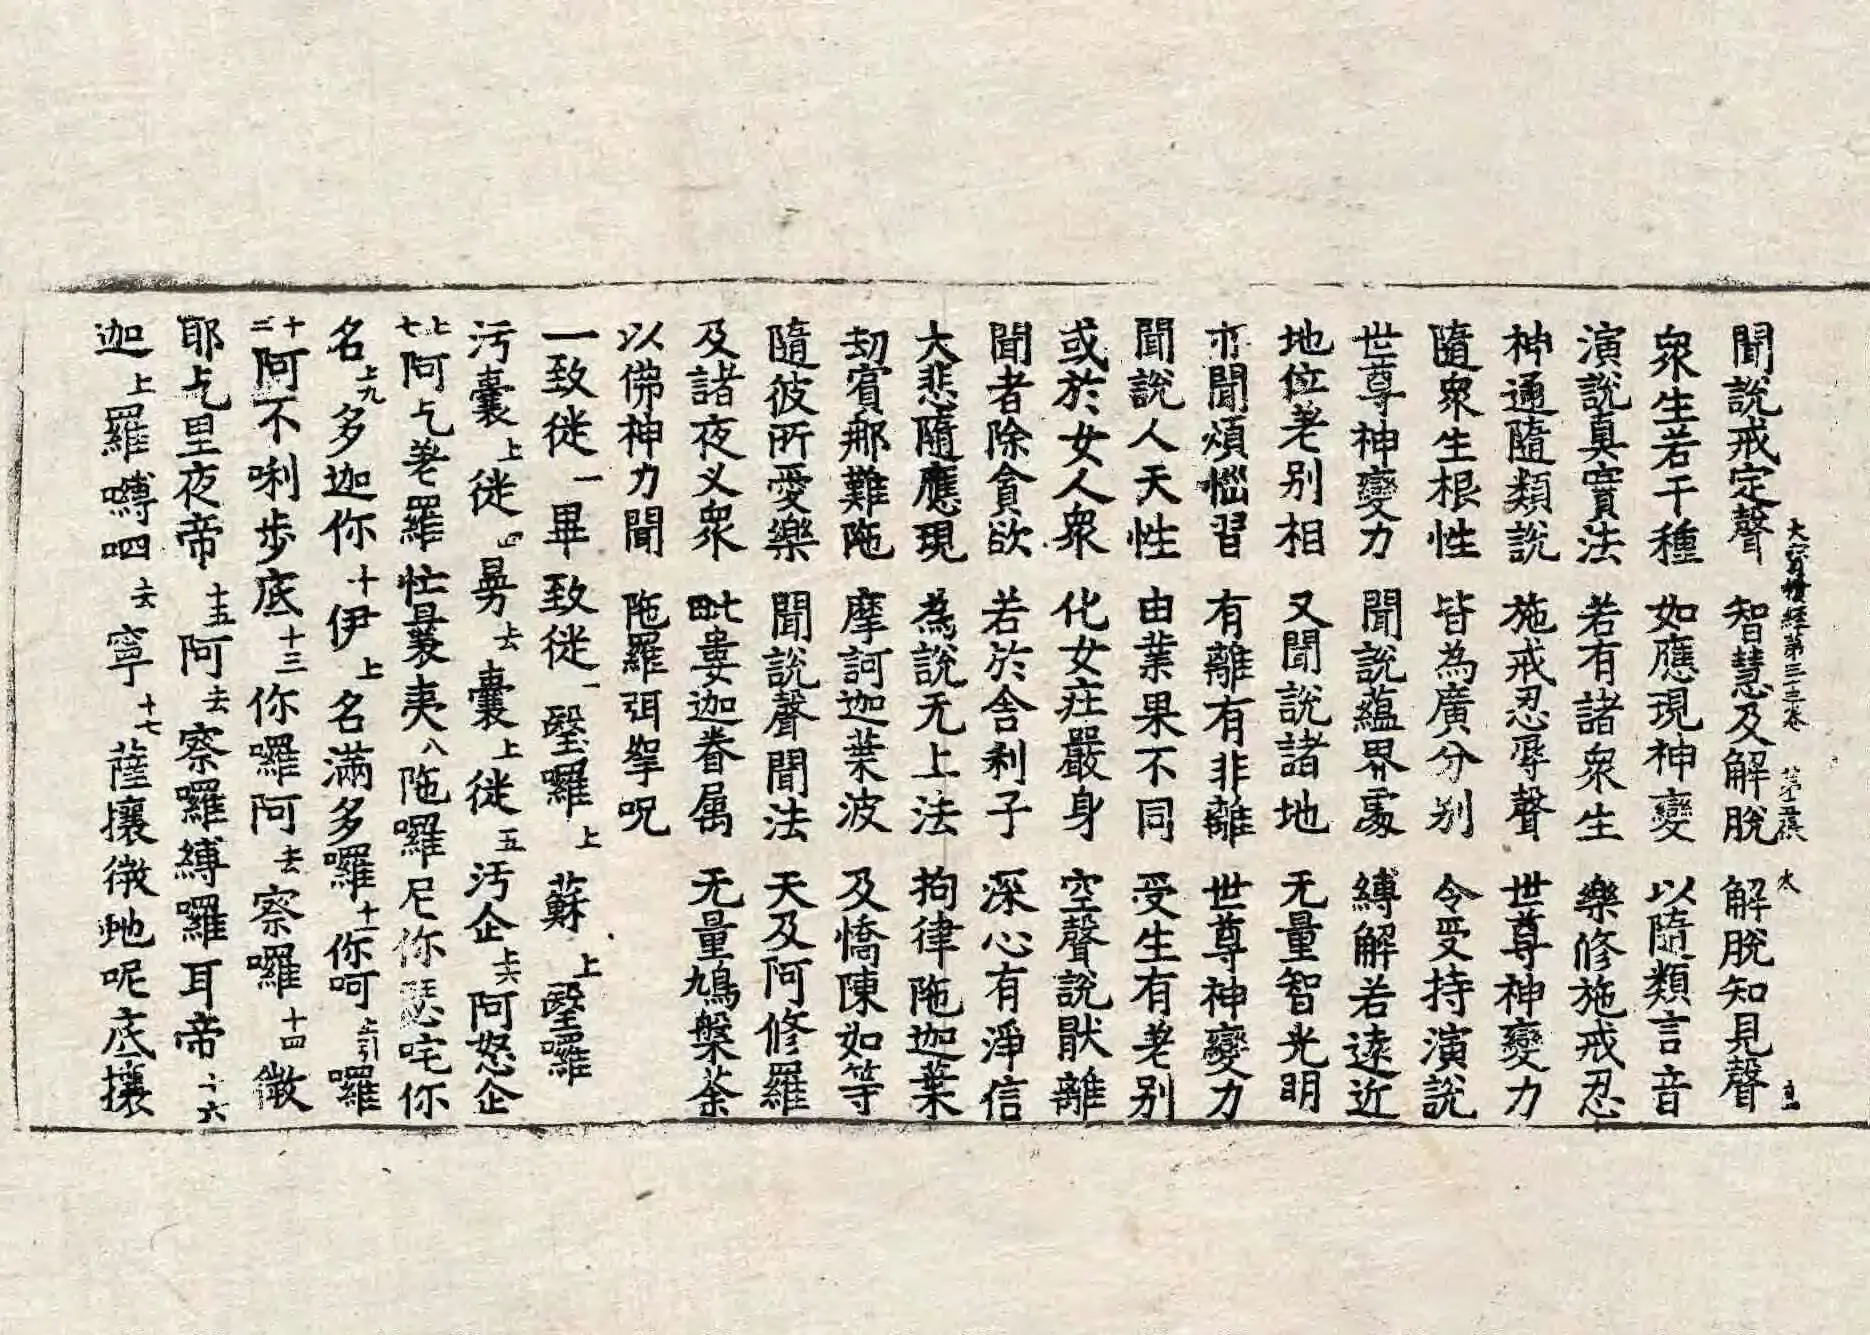 聞說戒定聲 智慧及解脫 解脫知見聲
大寳積經第三十三卷 第二張 火
衆生若干種 如應現神變 以隨類言音
演說真實法 若有諸衆生 樂修施戒忍
神通隨類說 施戒忍辱聲 世尊神變力
隨衆生根性 皆為廣分别 令受持演說
世尊神變力 聞說蘊界處 縛解若遠近
地位差别相 又聞說諸地 无量智光明
亦聞煩惱習 有離有非離 世尊神變力
聞說人天性 由業果不同 受生有差别
或於女人衆 化女莊嚴身 空聲說猒離
聞者除貪欲 若於舍利子 深心有淨信
大悲隨應現 為說无上法 拘律陁迦葉
劫賓那難陁 摩訶迦葉波 及憍陳如等
隨彼所愛樂 聞說聲聞法 天及阿修羅
及諸夜叉衆 毗婁迦眷属 无量鳩槃荼
以佛神力聞 陁羅弭拏呪
一致徙一畢致徙二瑿囉上蘇上瑿囉
汚囊上徙四昇去囊上徙五汚企上六阿怒企
上七阿乞差羅忙曩夷八陁囉尼你瑟咤你
名上九多迦你十伊上名滿多囉十一你呵上引囉
十二阿不唎步底十三你囉阿去察囉十四徵
耶乞里夜帝十五阿去察囉縛羅耳帝十六
迦上羅嚩呬去寧十七薩攘徵虵呢底攘